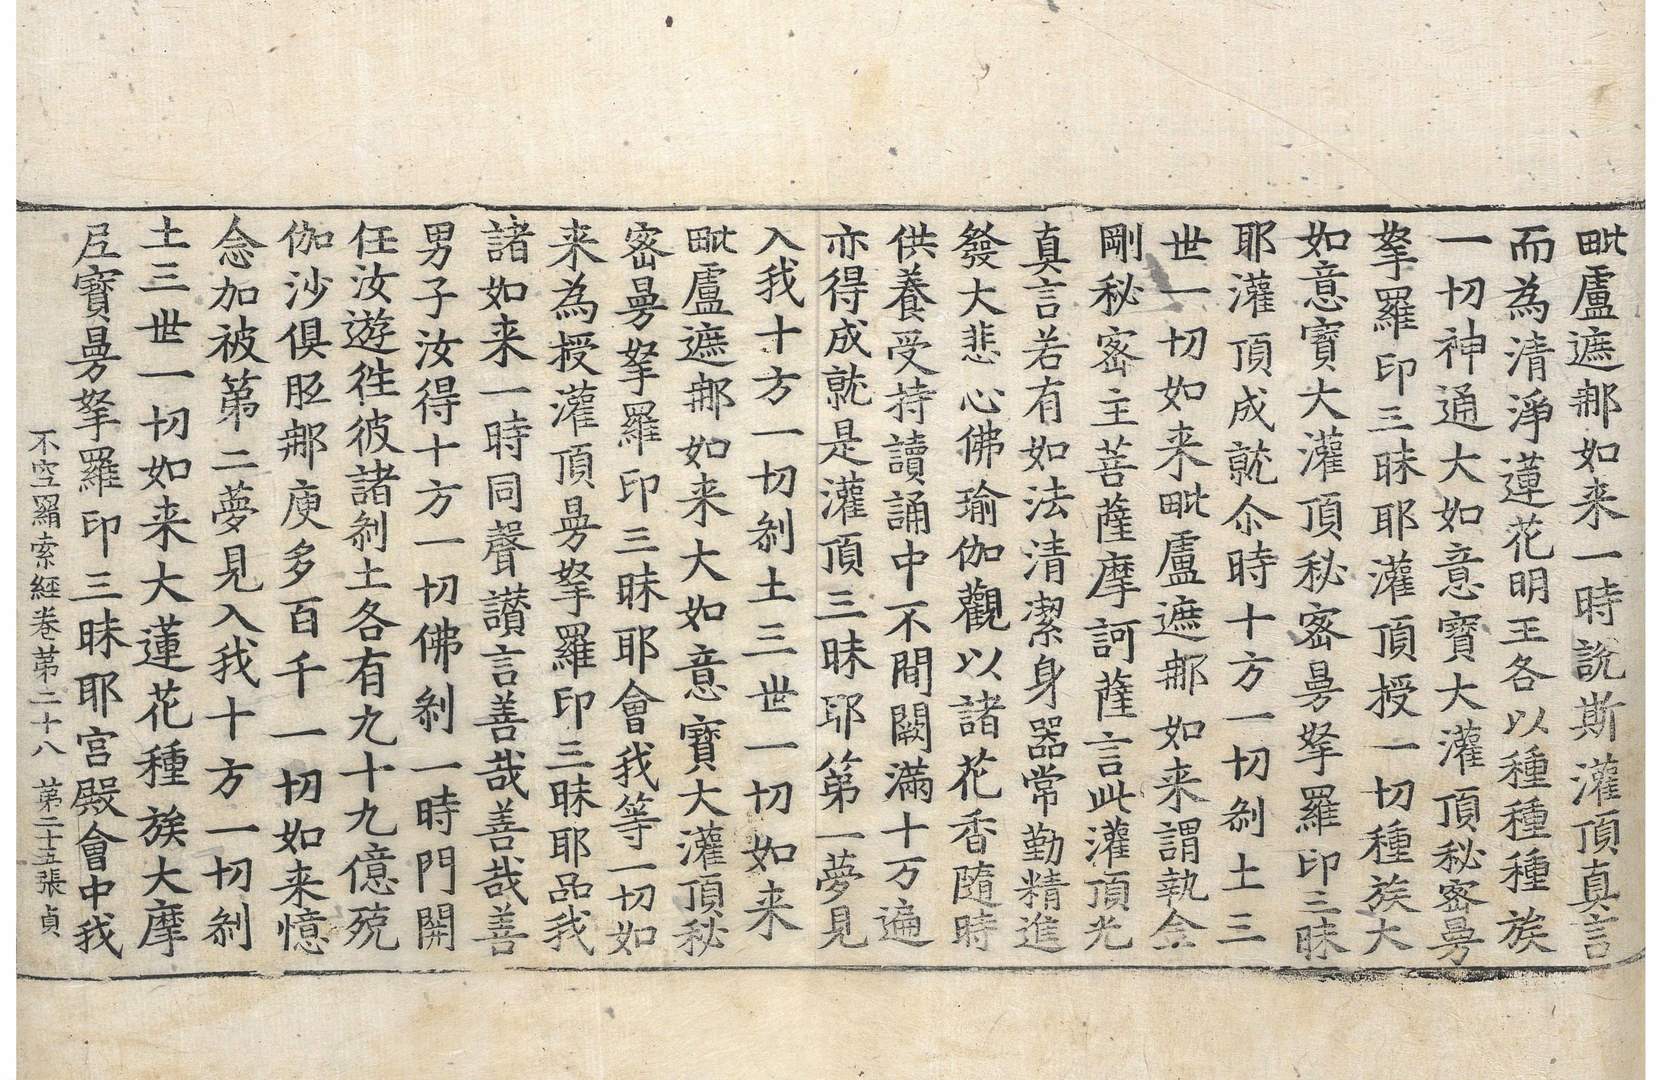 毗盧遮郍如来一時說斯灌頂真言
而為清淨蓮花明王各以種種種族
一切神通大如意寶大灌頂秘密曼
拏羅印三昧耶灌頂授一切種族大
如意寶大灌頂秘密曼拏羅印三昧
耶灌頂成就尒時十方一切剎土三
世一切如来毗盧遮郍如来謂執金
剛秘密主菩薩摩訶薩言此灌頂光
真言若有如法清潔身器常勤精進
發大悲心佛瑜伽觀以諸花香隨時
供養受持讀誦中不間闕滿十万遍
亦得成就是灌頂三昧耶第一夢見
入我十方一切剎土三世一切如来
毗盧遮郍如来大如意寶大灌頂秘
密曼拏羅印三昧耶會我等一切如
来為授灌頂曼拏羅印三昧耶品我
諸如来一時同聲讃言善哉善哉善
男子汝得十方一切佛剎一時門開
任汝遊往彼諸剎土各有九十九億殑
伽沙俱胝郍庾多百千一切如来憶
念加被第二夢見入我十方一切剎
土三世一切如来大蓮花種族大摩
尼寶曼拏羅印三昧耶宮殿會中我
不空羂索經卷第二十八 第二十五張 貞